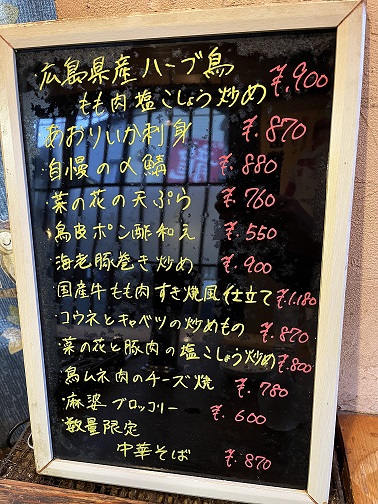 広島県産ハーブ鳥
もも肉塩こしょう炒め ¥.900
あおりいか刺身 ¥.870
・自慢の〆鯖 ¥.880
・菜の花の天ぷら ¥.760
・鳥皮ポン酢和え ¥.550
・海老豚巻き炒め ¥.900
・国産牛もも肉すき焼風仕立て ¥.1,180
・コウネとキャベツの炒めもの ¥.870
・菜の花と豚肉の塩こしょう炒め ¥.800
・鳥ムネ肉のチーズ焼 ¥.780
・麻婆ブロッコリー ¥.600
・数量限定
中華そば ¥.870